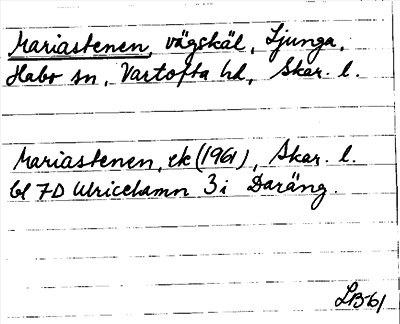 Mariastenen, vägskäl, Ljunga,
Habo sn, Vartofta hd, Skar. l.
Mariastenen, ek (1961), Skar. l.
bl 7D Ulricehamn 3i Daräng.
LB 61